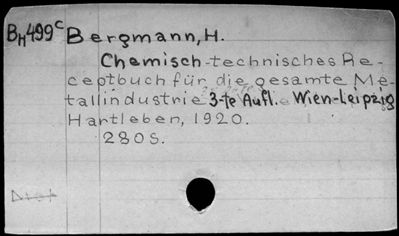 BH499c Bergmann, H.
Chemisch-technisches Re-
ceptbuch für die gesamte Me-
tallindustrie 3-te Aufl. Wien-Leipzig
Hartleben, 1920.
280S.